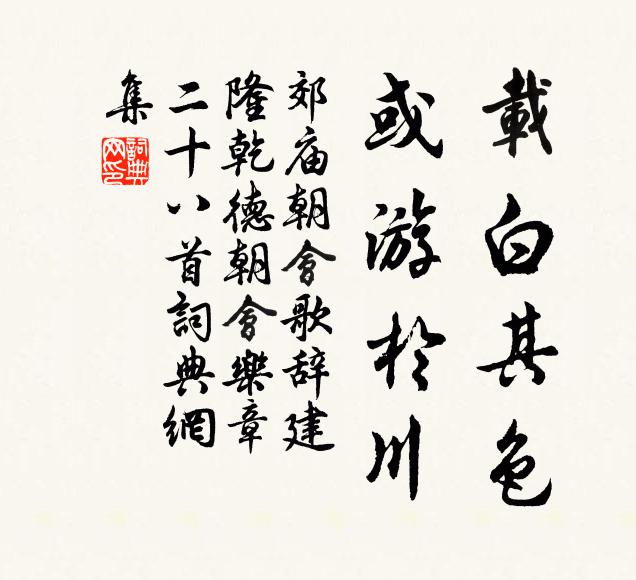 載白其色
或游於川
郊庙朝會歌辞建
隆乾德朝會樂章
二十八首詞典網
集
詞典
网印